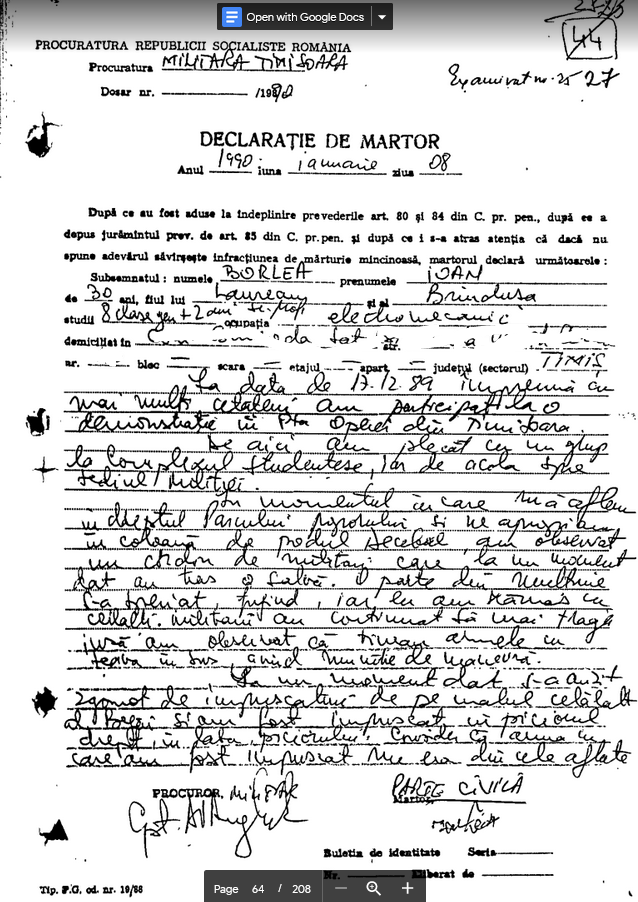 Open with Google Docs
44
PROCURATURA REPUBLICII SOCIALISTE ROMÂNIA
Procuratura MILITARA TIMISOARA
Examinat nr. 25 27
Dosar nr. /1990
DECLARAŢIE DE MARTOR
Anul 1990 luna ianuarie ziua 08
După ce au fost aduse la îndeplinire prevederile art. 80 şi 84 din C. pr. pen., după ce a
depus jurămîntul prev. de art. 85 din C. pr. pen. şi după ce i s-a atras atenţia că dacă nu
spune adevărul săvîrşeşte infracţiunea de mărturie mincinoasă, martorul declară următoarele :
Subsemnatul : numele BORLEA prenumele IOAN
de 30 ani, fiul lui Laurean şi al Brindusa
studii 8 clase gen + 2 ani ocupaţia electromecanic
domiciliat în str.
nr. — bloc — scara — etajul — apart. — judeţul (sectorul) TIMIŞ
La data de 17.12.89 împreună cu
mai mulţi cetateni am participat la o
demonstratie în Pta Operei din Timisoara.
De aici am plecat cu un grup
la Complexul Studentesc, iar de acolo spre
sediul Militiei.
In momentul în care mă aflam
in dreptul Parcului si ne apropiam
în coloană de podul Decebal, am observat
un cordon de militari care la un moment
dat au tras o salvă. O parte din multime
s-a speriat, fugind, iar eu am ramas cu
ceilalti. Militarii au continuat să mai tragă
însă am observat că tineau armele cu
teava în sus, avînd munitie de manevră.
La un moment dat s-a auzit
zgomot de impuscaturi de pe malul celălalt
al Begăi si am fost impuscat in piciorul
drept, in laba piciorului. Consider că arma cu
care am fost impuscat nu era din cele aflate
PROCUROR, MILITAR
PARTE CIVILĂ
Martor,
Buletin de identitate Seria
Nr. Eliberat de
Tip. P.G. cd. nr. 19/88
Page 64 / 208